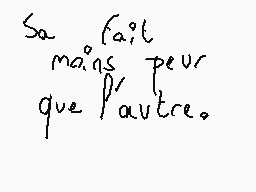 Sa fait
moins peur
que l'autre.